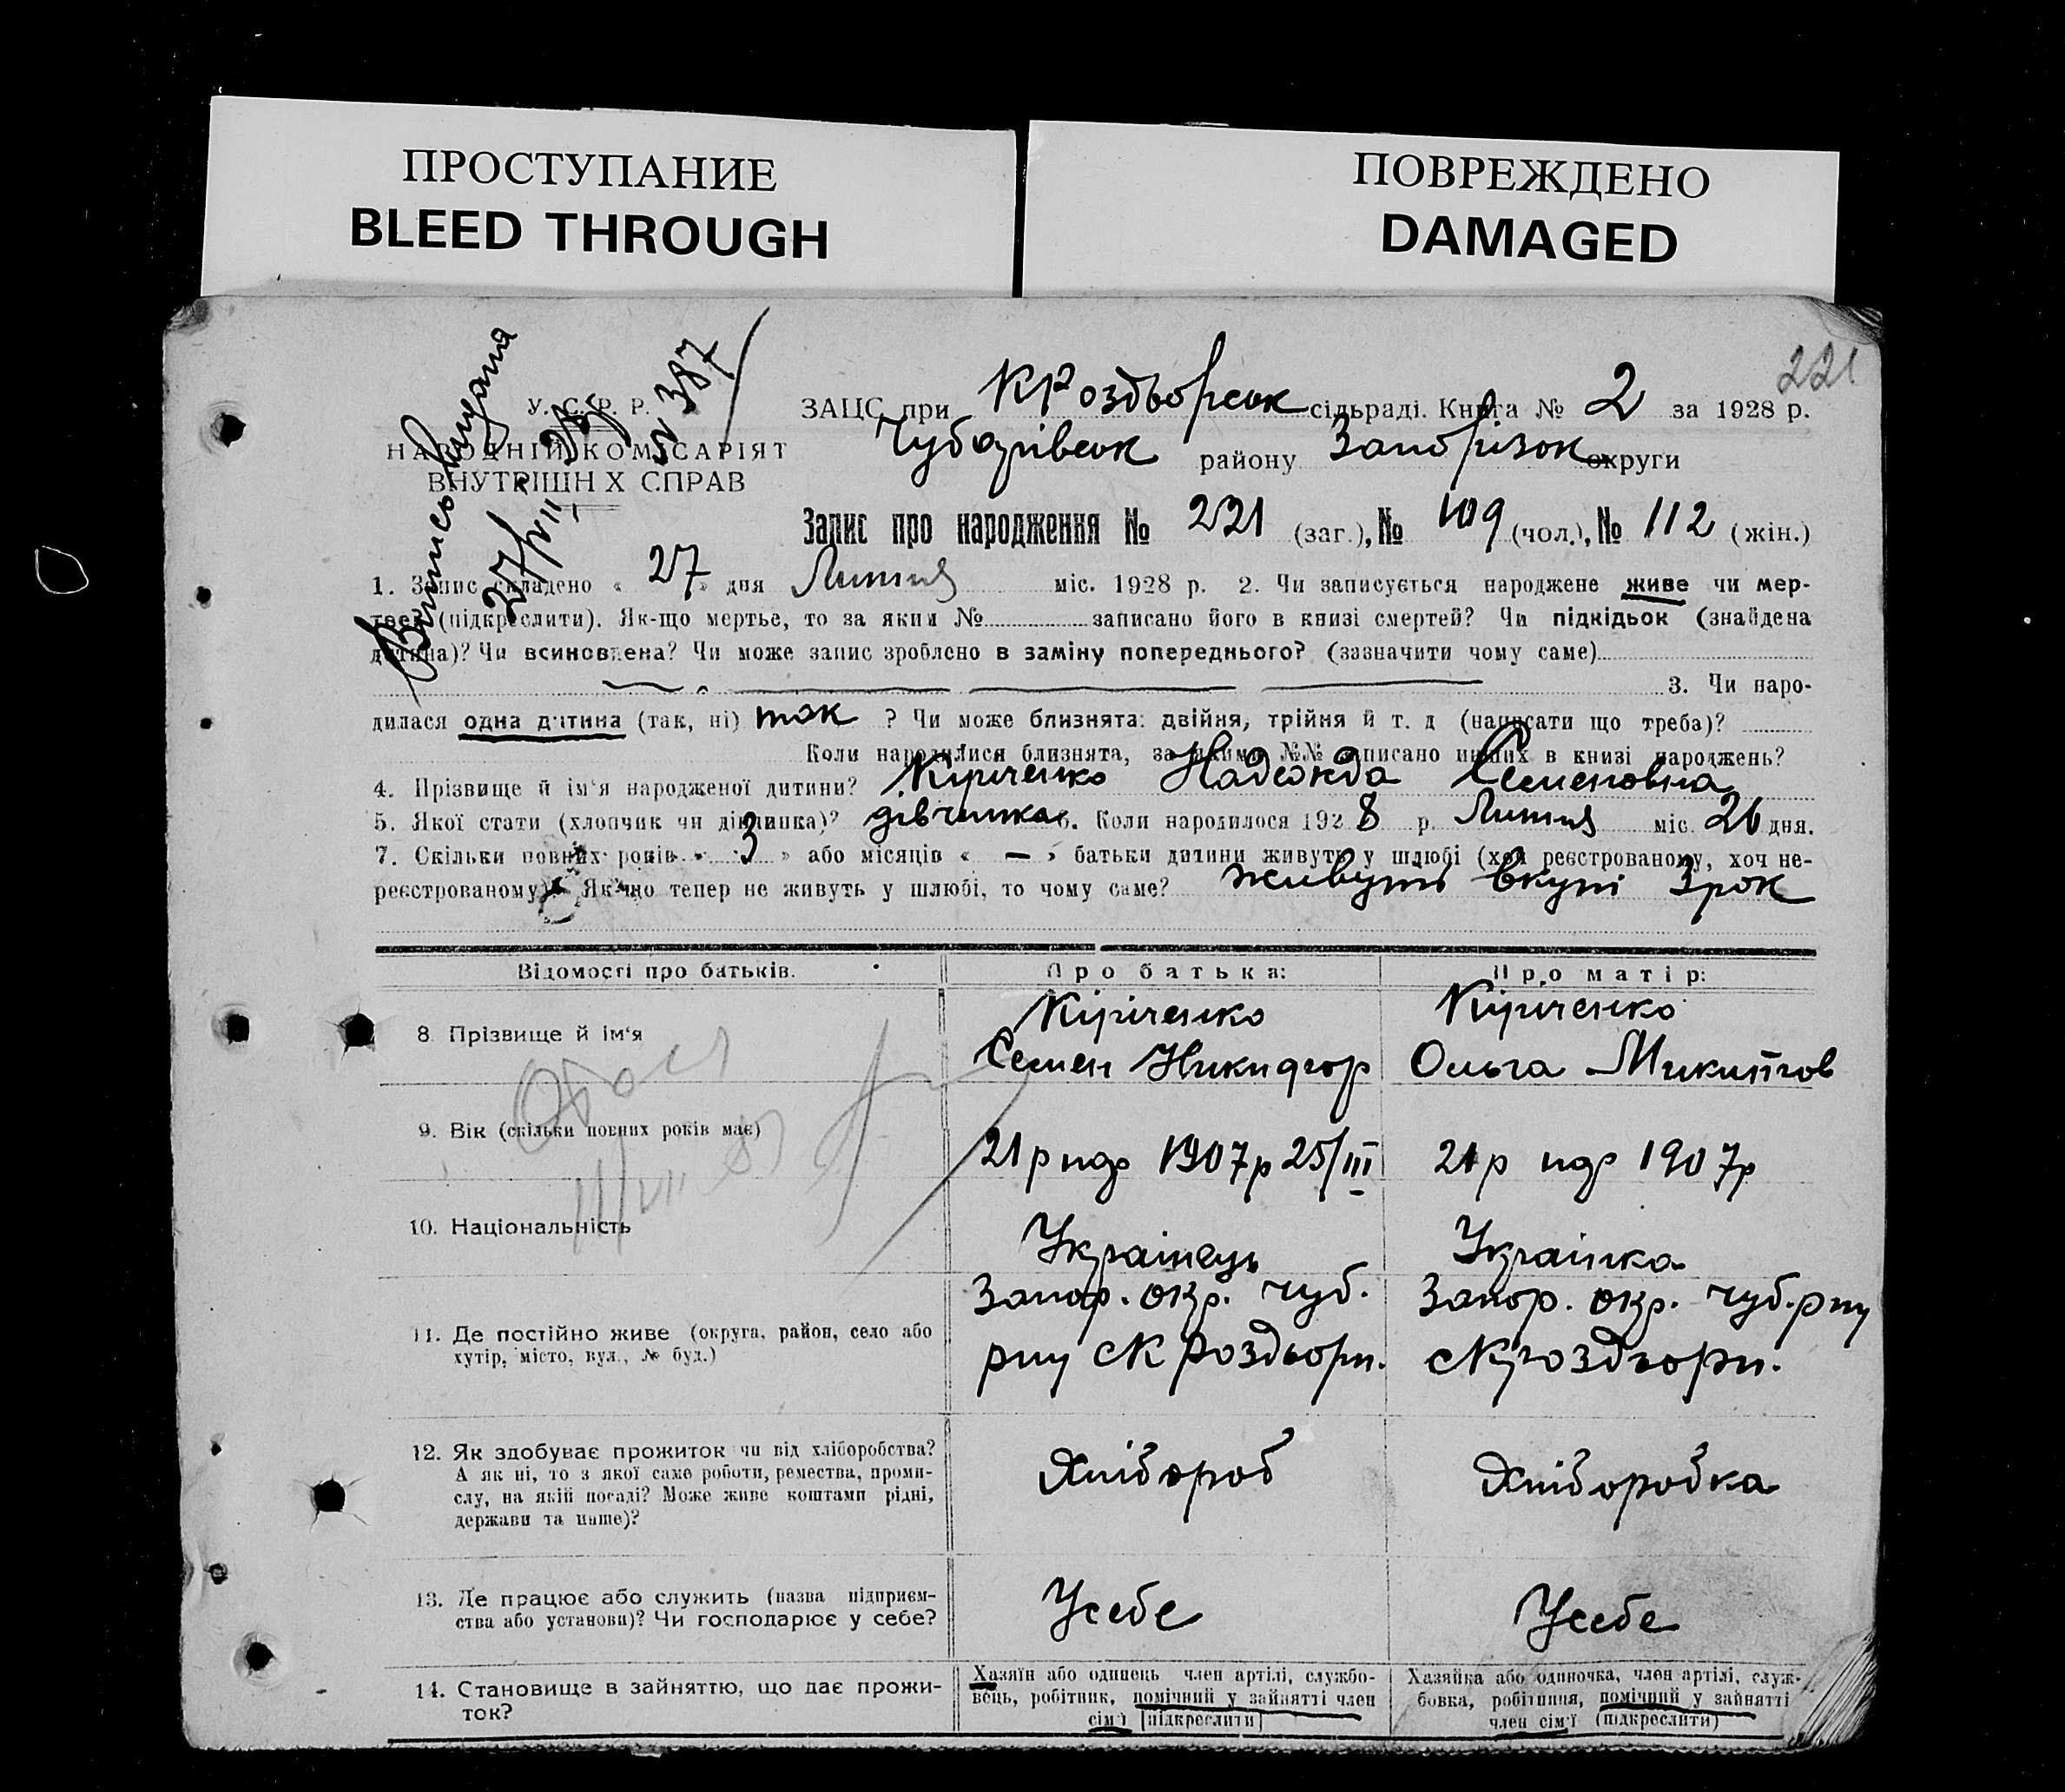 ПРОСТУПАНИЕ
BLEED THROUGH
ПОВРЕЖДЕНО
DAMAGED
221
У. С. Р. Р.
НАРОДНІЙ КОМІСАРІЯТ
ВНУТРІШН Х СПРАВ
Випись видана
27/VII
№ 387
ЗАЦС при К Роздьорськ сільраді. Книга № 2 за 1928 р.
Чубарівськ району Запорізьк округи
Запис про народження № 221 (заг.), № 109 (чол.), № 112 (жін.)
1. Запис складено « 27 » дня Липня міс. 1928 р. 2. Чи записується народжене живе чи мер-
тве (підкреслити). Як-що мертве, то за яким № записано його в книзі смертей? Чи підкідьок (знайдена
дитина)? Чи всиновлена? Чи може запис зроблено в заміну попереднього? (зазначити чому саме)
3. Чи наро-
дилася одна дитина (так, ні) так ? Чи може близнята: двійня, трійня й т. д (написати що треба)?
Коли народилися близнята, за якими №№ записано инших в книзі народжень?
4. Прізвище й ім'я народженої дитини? Кіріченко Надежда Семеновна
5. Якої стати (хлопчик чи дівчинка)? дівчинка 6. Коли народилося 1928 р. Липня міс. 26 дня.
7. Скільки повних років « 3 » або місяців « — » батьки дитини живуть у шлюбі (хоч реєстрованому, хоч не-
реєстрованому)? Як-що тепер не живуть у шлюбі, то чому саме? живуть вкупі 3 рок
Відомості про батьків. Про батька: Про матір:
8. Прізвище й ім'я
Кіріченко
Семен Никифор
Кіріченко
Ольга Микитов
9. Вік (скільки повних років має)
21 р 1907р 25/III
21 р 1907р
10. Національність
Українець
Українка
11. Де постійно живе (округа, район, село або
хутір, місто, вул., № буд.)
Запор. окр. Чуб.
рну с К роздьорн.
Запор. окр. Чуб. рну
с К роздьорн.
12. Як здобуває прожиток чи від хліборобства?
А як ні, то з якої саме роботи, ремества, проми-
слу, на якій посаді? Може живе коштами рідні,
держави та инше)?
Хлібороб
Хліборобка
13. Де працює або служить (назва підприєм-
ства або установи)? Чи господарює у себе?
Усебе
Усебе
14. Становище в зайняттю, що дає прожи-
ток?
Хазяїн або одинець член артілі, службо-
вець, робітник, помічний у зайнятті член
сім'ї [підкреслити]
Хазяйка або одиночка, член артілі, служ-
бовка, робітниця, помічний у зайнятті
член сім'ї (підкреслити)